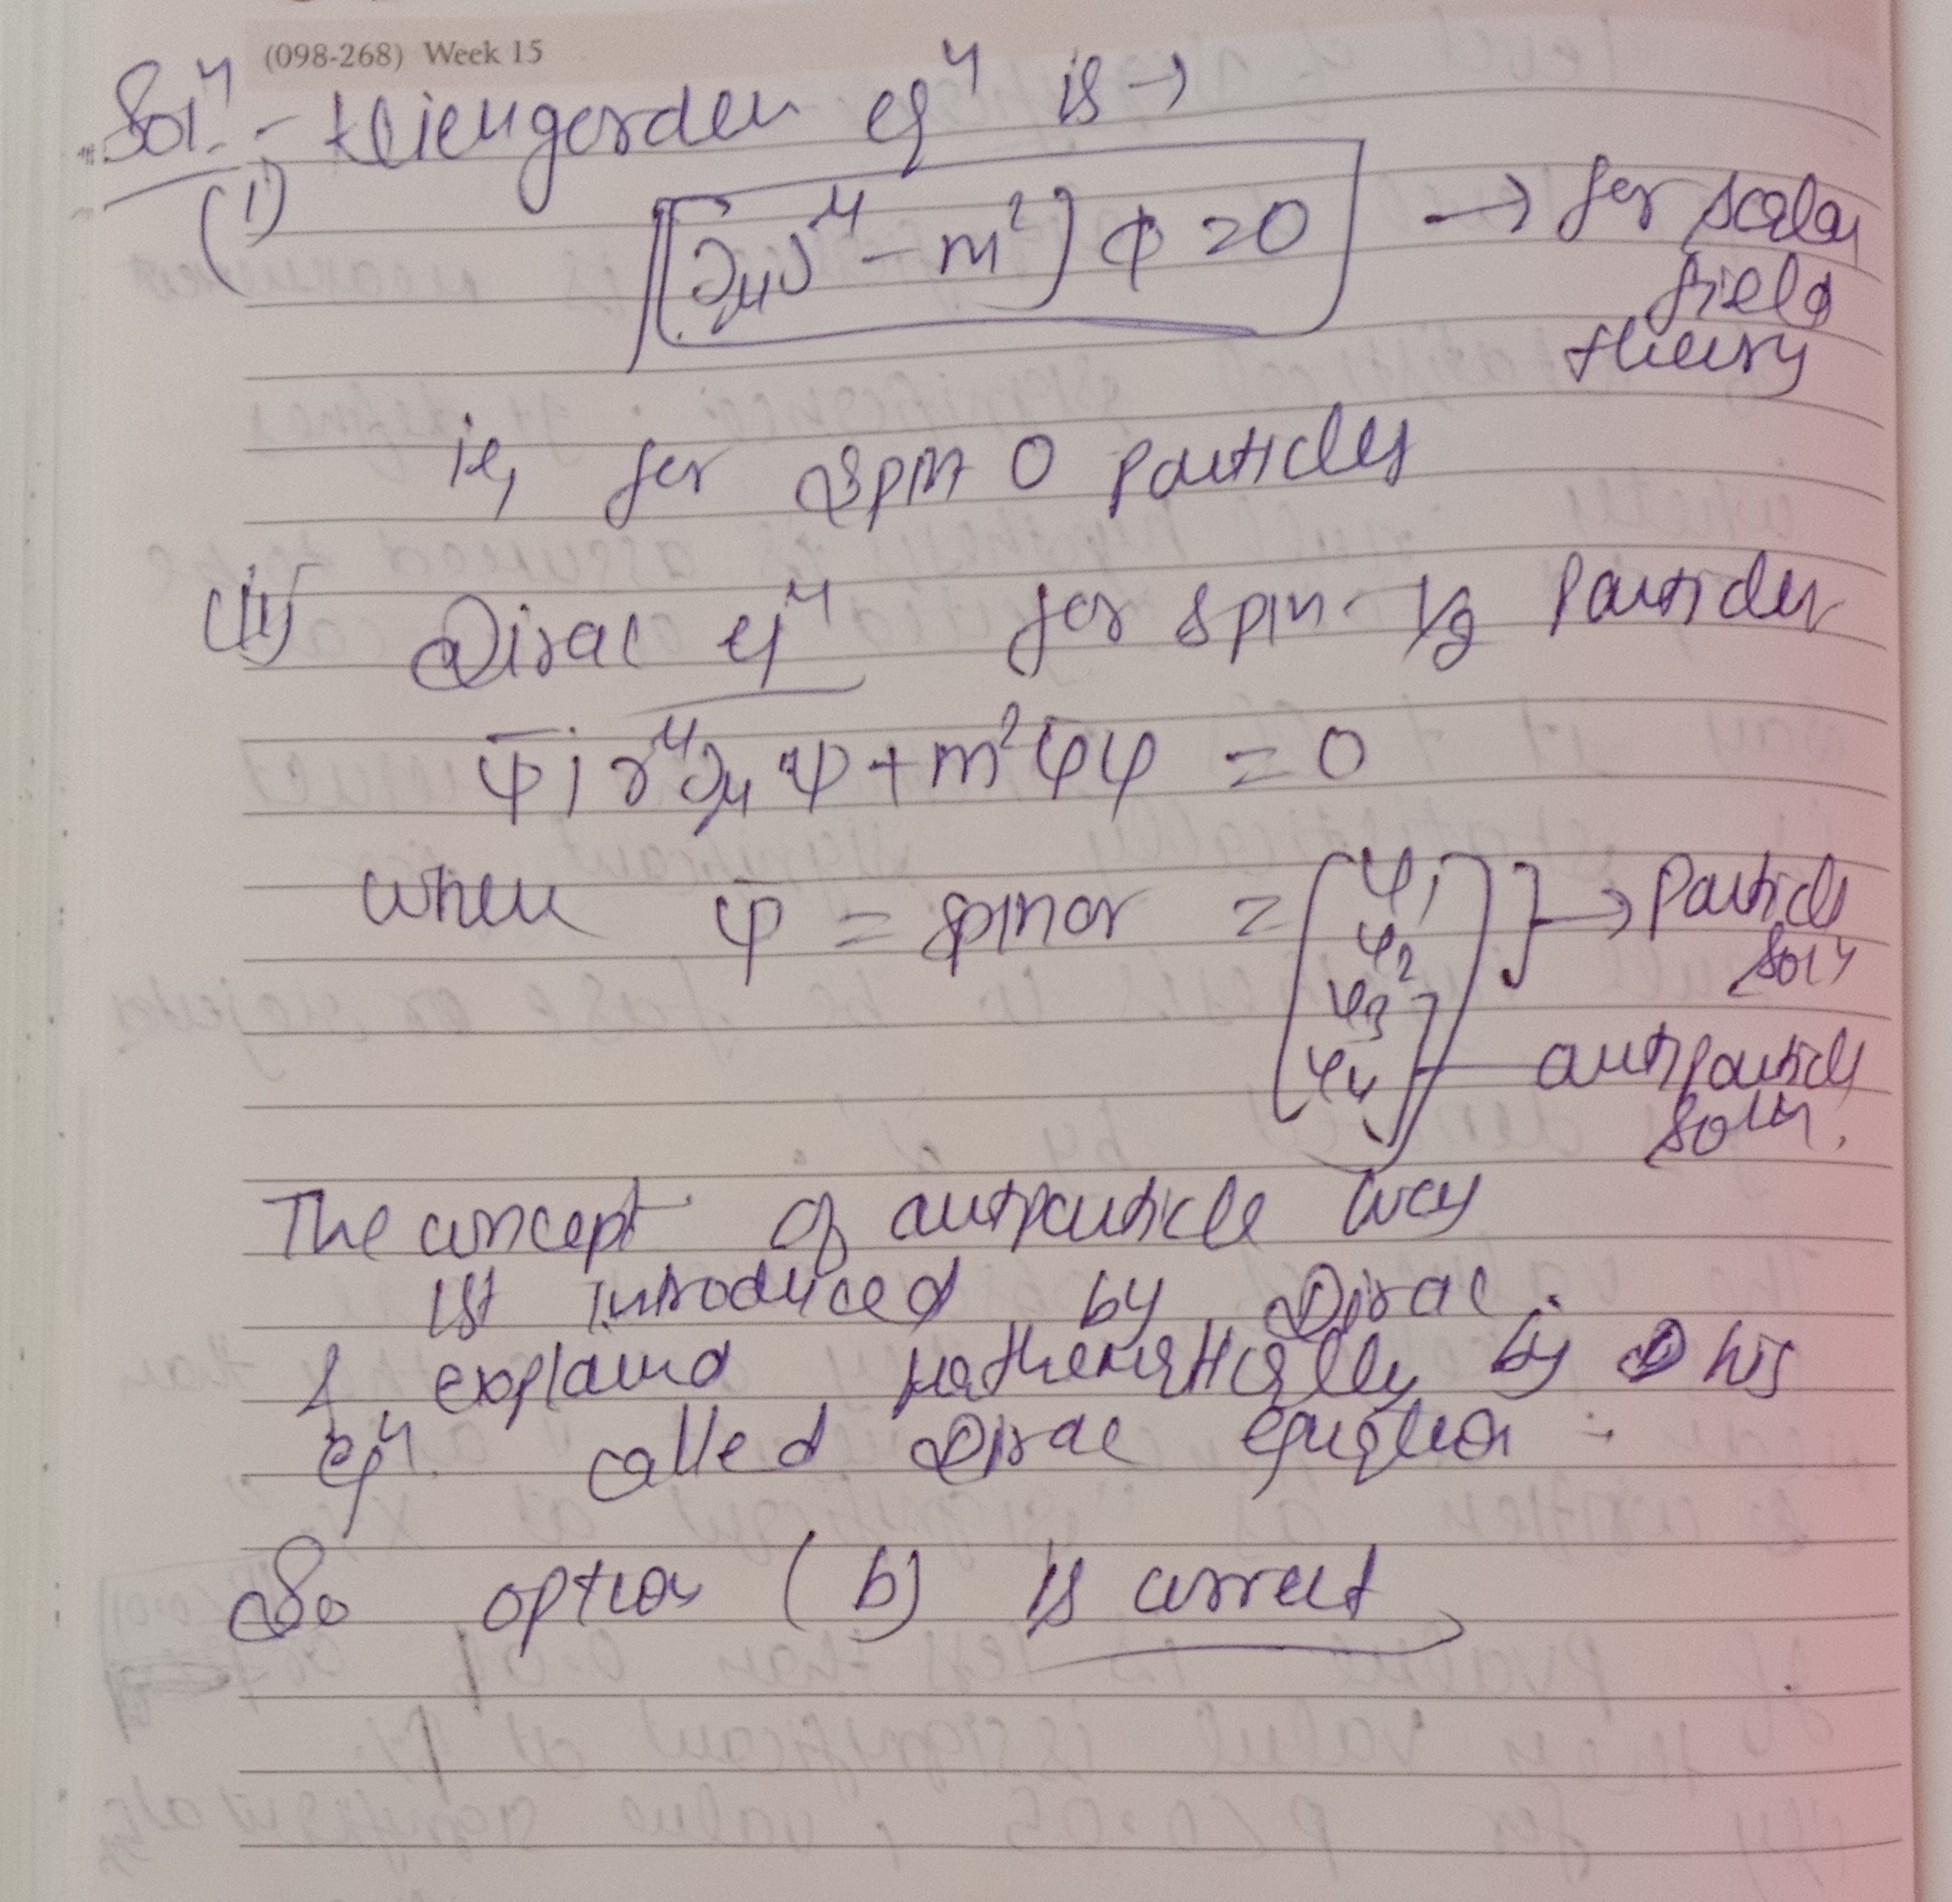 (098-268) Week 15
Solⁿ :- Kleingorden eqⁿ is →
(i)
[∂μ∂^μ - m²] φ = 0 → for scalar
field
theory
ie, for spin 0 particles
(ii) Dirac eqⁿ for spin-1/2 Particles
ψ̄ i γ^μ ∂μ ψ + m² ψ̄ψ = 0
when ψ̄ = spinor = [ψ1 ψ2 ψ3 ψ4] → Particle
solⁿ
antiparticle
solun.
The concept of antiparticle was
1st introduced by Dirac.
& explained mathematically by his
eqⁿ called Dirac equation :
So option (b) is correct